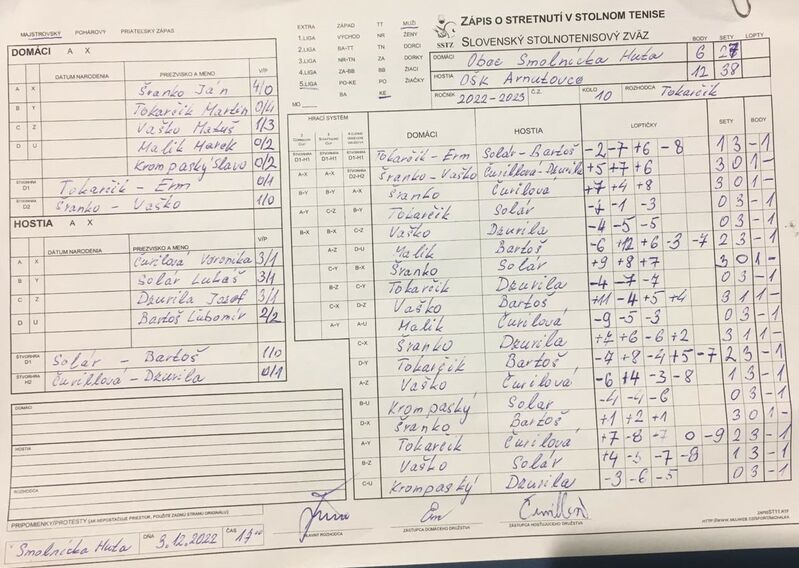 MAJSTROVSKÝ POHÁROVÝ PRIATEĽSKÝ ZÁPAS
EXTRA ZÁPAD TT MUŽI
1.LIGA VÝCHOD NR ŽENY
2.LIGA BA-TT TN DORCI
3.LIGA NR-TN ZA DORKY
4.LIGA ZA-BB BB ŽIACI
5.LIGA PO-KE PO ŽIAČKY
MO BA KE
ZÁPIS O STRETNUTÍ V STOLNOM TENISE
SSTZ SLOVENSKÝ STOLNOTENISOVÝ ZVÄZ
BODY SETY LOPTY
DOMÁCI Obec Smolnícka Huta 6 27
HOSTIA OŠK Arnutovce 12 38
ROČNÍK 2022-2023 Č.Z. KOLO 10 ROZHODCA Tokarčík
DOMÁCI A X
DÁTUM NARODENIA PRIEZVISKO A MENO V/P
A X Šranko Ján 4/0
B Y Tokarčík Martin 0/4
C Z Vaško Matúš 1/3
D U Malik Marek 0/2
Krompaský Slavo 0/2
ŠTVORHRA D1 Tokarčík - Erm 0/1
ŠTVORHRA D2 Šranko - Vaško 1/0
HOSTIA A X
DÁTUM NARODENIA PRIEZVISKO A MENO V/P
A X Čurilová Veronika 3/1
B Y Solár Lukáš 3/1
C Z Dzurila Jozef 3/1
D U Bartoš Ľubomír 2/2
ŠTVORHRA Solár - Bartoš 1/0
ŠTVORHRA H2 Čurillová - Dzurila 0/1
DOMÁCI
HOSTIA
ROZHODCA
PRIPOMIENKY/PROTESTY (AK NEPOSTAČUJE PRIESTOR, POUŽITE ZADNÚ STRANU ORIGINÁLU)
Smolnícka Huta DŇA 3.12.2022 ČAS 17 00
HRACÍ SYSTÉM DOMÁCI HOSTIA LOPTIČKY SETY BODY
D1-H1 D1-H1 D1-H1 Tokarčík - Erm Solár - Bartoš -2 -7 +6 -8 1 3 - 1
A-X A-X D2-H2 Šranko - Vaško Čurillová - Dzurila +5 +7 +6 3 0 1 -
B-Y B-Y A-X Šranko Čurilova +7 +4 +8 3 0 1 -
A-Y C-Z B-Y Tokarčík Solár 0 3 - 1
B-X B-X C-Z Vaško Dzurila -4 -5 -5 0 3 - 1
A-Z D-U Malik Bartoš -6 +12 +6 -3 -7 2 3 - 1
C-Y B-X Šranko Solár +9 +8 +7 3 0 1 -
B-Z C-Y Tokarčík Dzurila -4 -7 -7 0 3 - 1
C-X D-Z Vaško Bartoš +11 -4 +5 +4 3 1 1 -
A-Y A-U Malik Čurilová -9 -5 -3 0 3 - 1
C-X Šranko Dzurila 3 1 1 -
D-Y Tokarčík Bartoš -7 +8 -4 +5 -7 2 3 - 1
A-Z Vaško Čurillová -6 +4 -3 -8 1 3 - 1
B-U Krompaský Solár -4 -4 -6 0 3 - 1
D-X Šranko Bartoš +1 +2 +1 3 0 1 -
A-Y Tokarčík Čurillová +7 -8 -7 0 -9 2 3 - 1
B-Z Vaško Solár 1 3 - 1
C-U Krompaský Dzurila -3 -6 -5 0 3 - 1
HLAVNÝ ROZHODCA ZÁSTUPCA DOMÁCEHO DRUŽSTVA ZÁSTUPCA HOSŤUJÚCEHO DRUŽSTVA